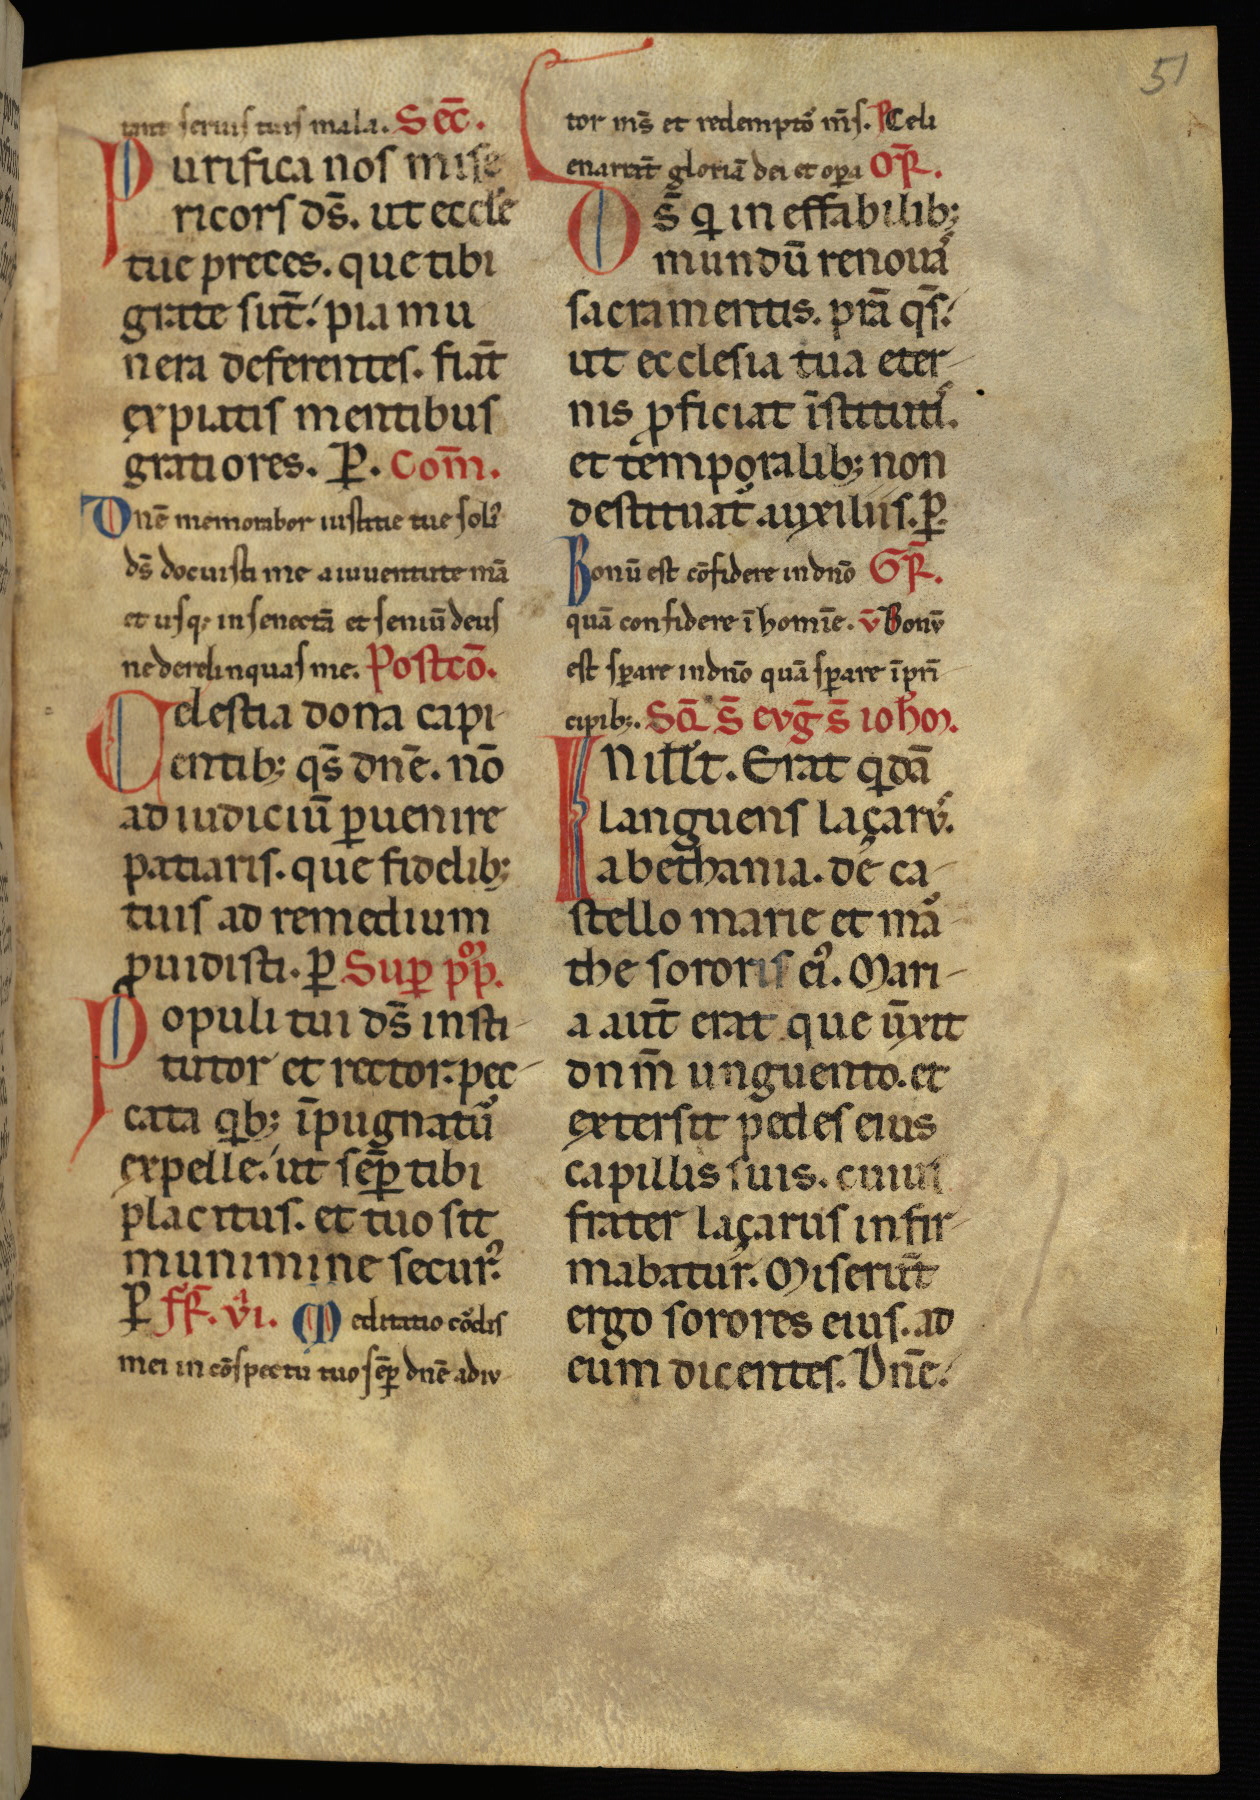 51
tant seruis tuis mala. Sec̄.
Purifica nos mise
ricors ds̄. ut eccl'e
tue preces. que tibi
grate sut̄. pia mu
nera deferentes. fiat̄
expiatis mentibus
gratiores. P. Com̄.
Dnē memorabor iustitie tue soli'
ds̄ docuisti me a iuuentute mā
et usq; in senectā et seniū deus
ne derelinquas me. Postcō.
Celestia dona capi
entib; qs̄ dnē. nō
ad iudiciū ꝑuenire
patiaris. que fidelib;
tuis ad remedium
ꝓuidisti. P Sup pp̄.
Populi tui ds̄ insti
tutor et rector. pec
cata qib; īpugnatu᷑
expelle. ut semꝑ tibi
placitus. et tuo sit
munimine secur᷒.
P Fr̄. vi. Meditatio cordis
mei in cōspectu tuo semꝑ dnē adiu
tor ms̄ et redempto᷑ ms̄. P Celi
enarrāt gloriā dei et oꝑa OR̄.
Ds̄ qi ineffabilib;
mundū renoua᷒
sacramentis. prā qs̄.
ut ecclesia tua eter
nis ꝓficiat īstituti᷒.
et temporalib; non
destituat᷑ auxiliis. P.
Bonū est cōfidere in dnō GR̄.
quā confidere ī homīe. v̄ Bonū
est sꝑare in dnō quā sꝑare ī pri̅
cipib;. Sq̄ s̄ evḡ s̄ ioh'oı.
N ill't. Erat qidā
languens laçarv᷒.
a bethania. de ca
stello marie et ma᷑
the sororis ei᷒. Mari
a aut̄ erat que ūxit
dnm̄ unguento. et
extersit pedes eius
capillis suis. cuius
frater laçarus infir
mabatur. Miserūt
ergo sorores eius. ad
eum dicentes. Dnē.